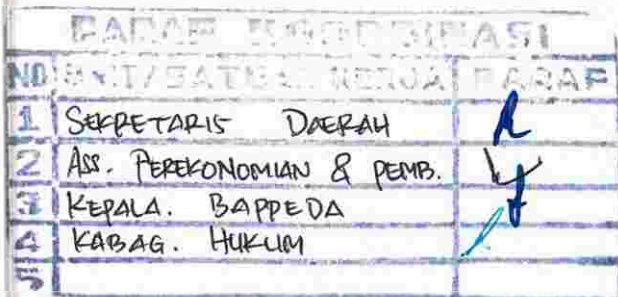 PARAF KOORDINASI
NO UNIT/SATUAN KERJA PARAF
1 SEKRETARIS DAERAH
2 ASS. PEREKONOMIAN & PEMB.
3 KEPALA. BAPPEDA
4 KABAG. HUKUM
5